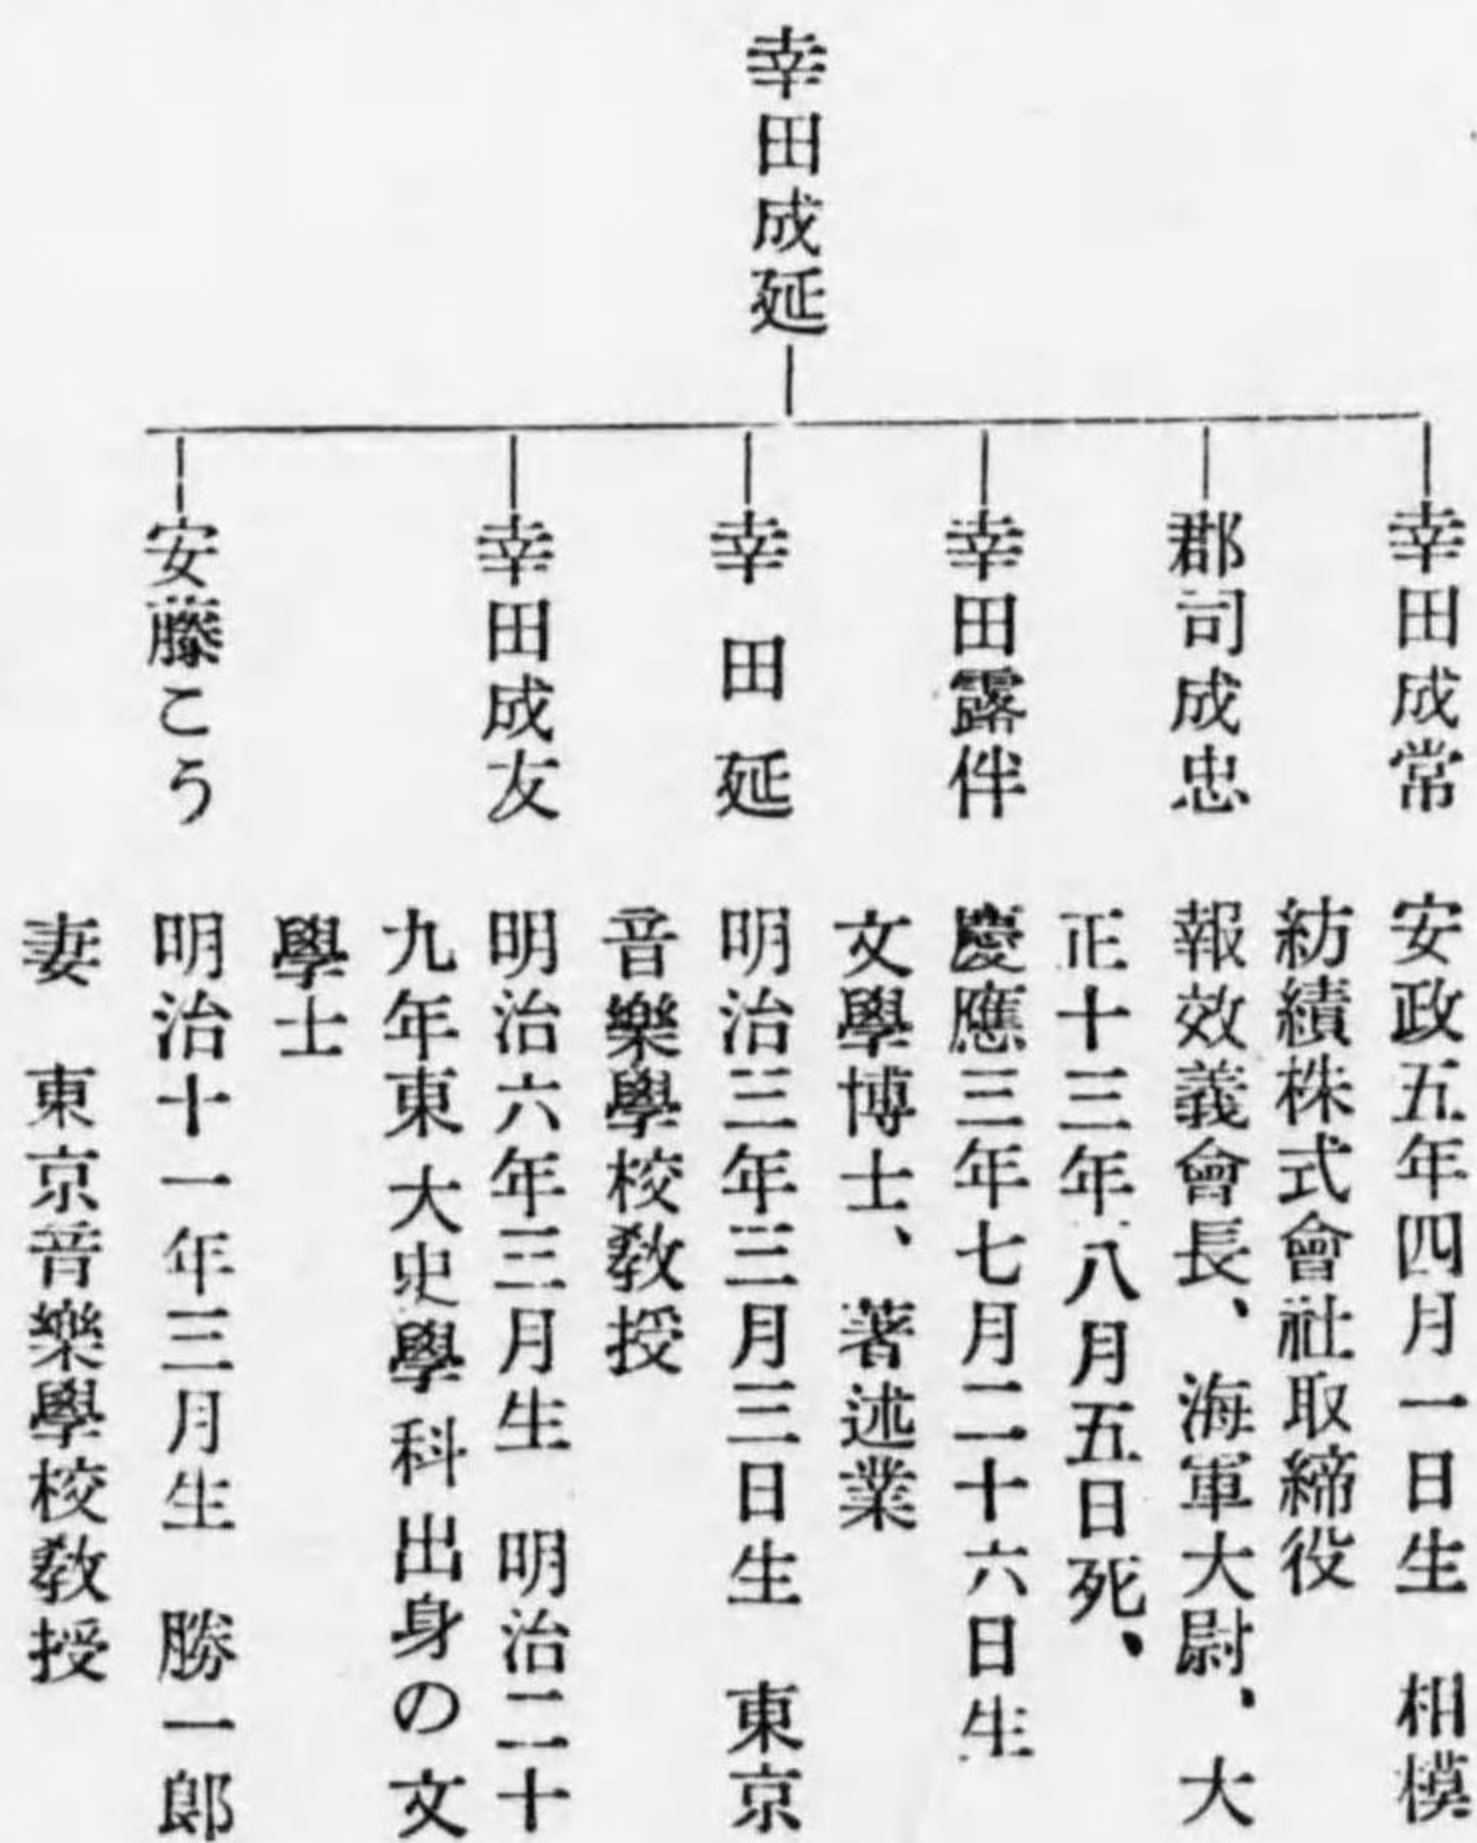 幸田成延
幸田成常
安政五年四月一日生　相模
紡績株式會社取締役
郡司成忠
報效義會長、海軍大尉、大
正十三年八月五日死、
幸田露伴
慶應三年七月二十六日生
文學博士、著述業
幸田延
明治三年三月三日生　東京
音樂學校教授
幸田成友
明治六年三月生　明治二十
九年東大史學科出身の文
學士
安藤こう
明治十一年三月生　勝一郎
妻　東京音樂學校教授